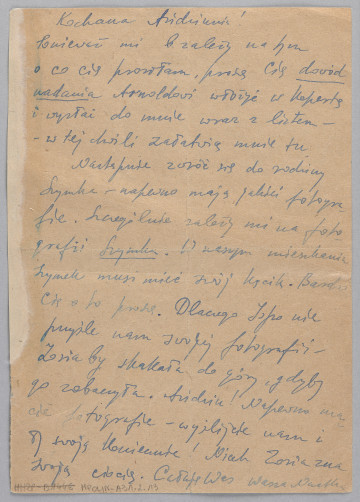 Kochana Andziuniu!
Ponieważ mi b. zależy na tym
o co cię prosiłam, proszę Cię dowód
nadania Arnoldowi włożyć w kopertę
i wysłać do mnie wraz z listem -
- w tej chwili załatwią mnie tu
Następnie zwróć się do rodziny
Szymka - napewno mają jakieś fotogra-
fie. Szczególnie zależy mi na foto
grafii Szymka. W naszym mieszkaniu
Szymek musi mieć swój kącik. Bardzo
Cię o to proszę. Dlaczego nie
nam swojej fotografii -
Zosia by skakała do góry gdyby
go zobaczyła. Napewno ma
cie fotografie - wyślijcie nam i
Ty swoją koniecznie! Niech Zosia zna
swoją ciocię. Całuję Was Wasza